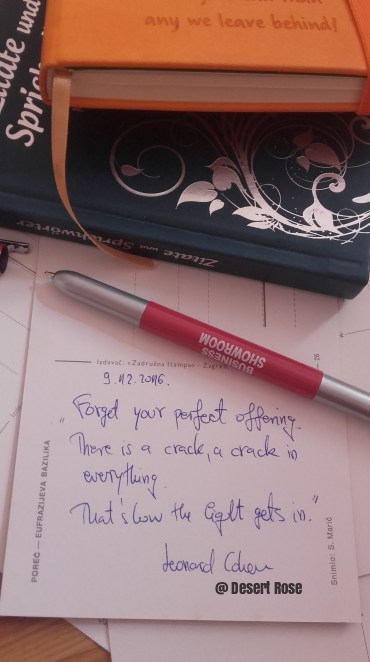 any we leave behind!
Zitate und
Zitate und Sprichwörter
BUSINESS
SHOWROOM
Izdavač: »Zadružna štampa« - Zagreb
26
9.12.2016.
"Forget your perfect offering.
There is a crack, a crack in
everything.
That's how the light gets in."
Leonard Cohen
@ Desert Rose
POREČ — EUFRAZIJEVA BAZILIKA
Snimio: S. Marić